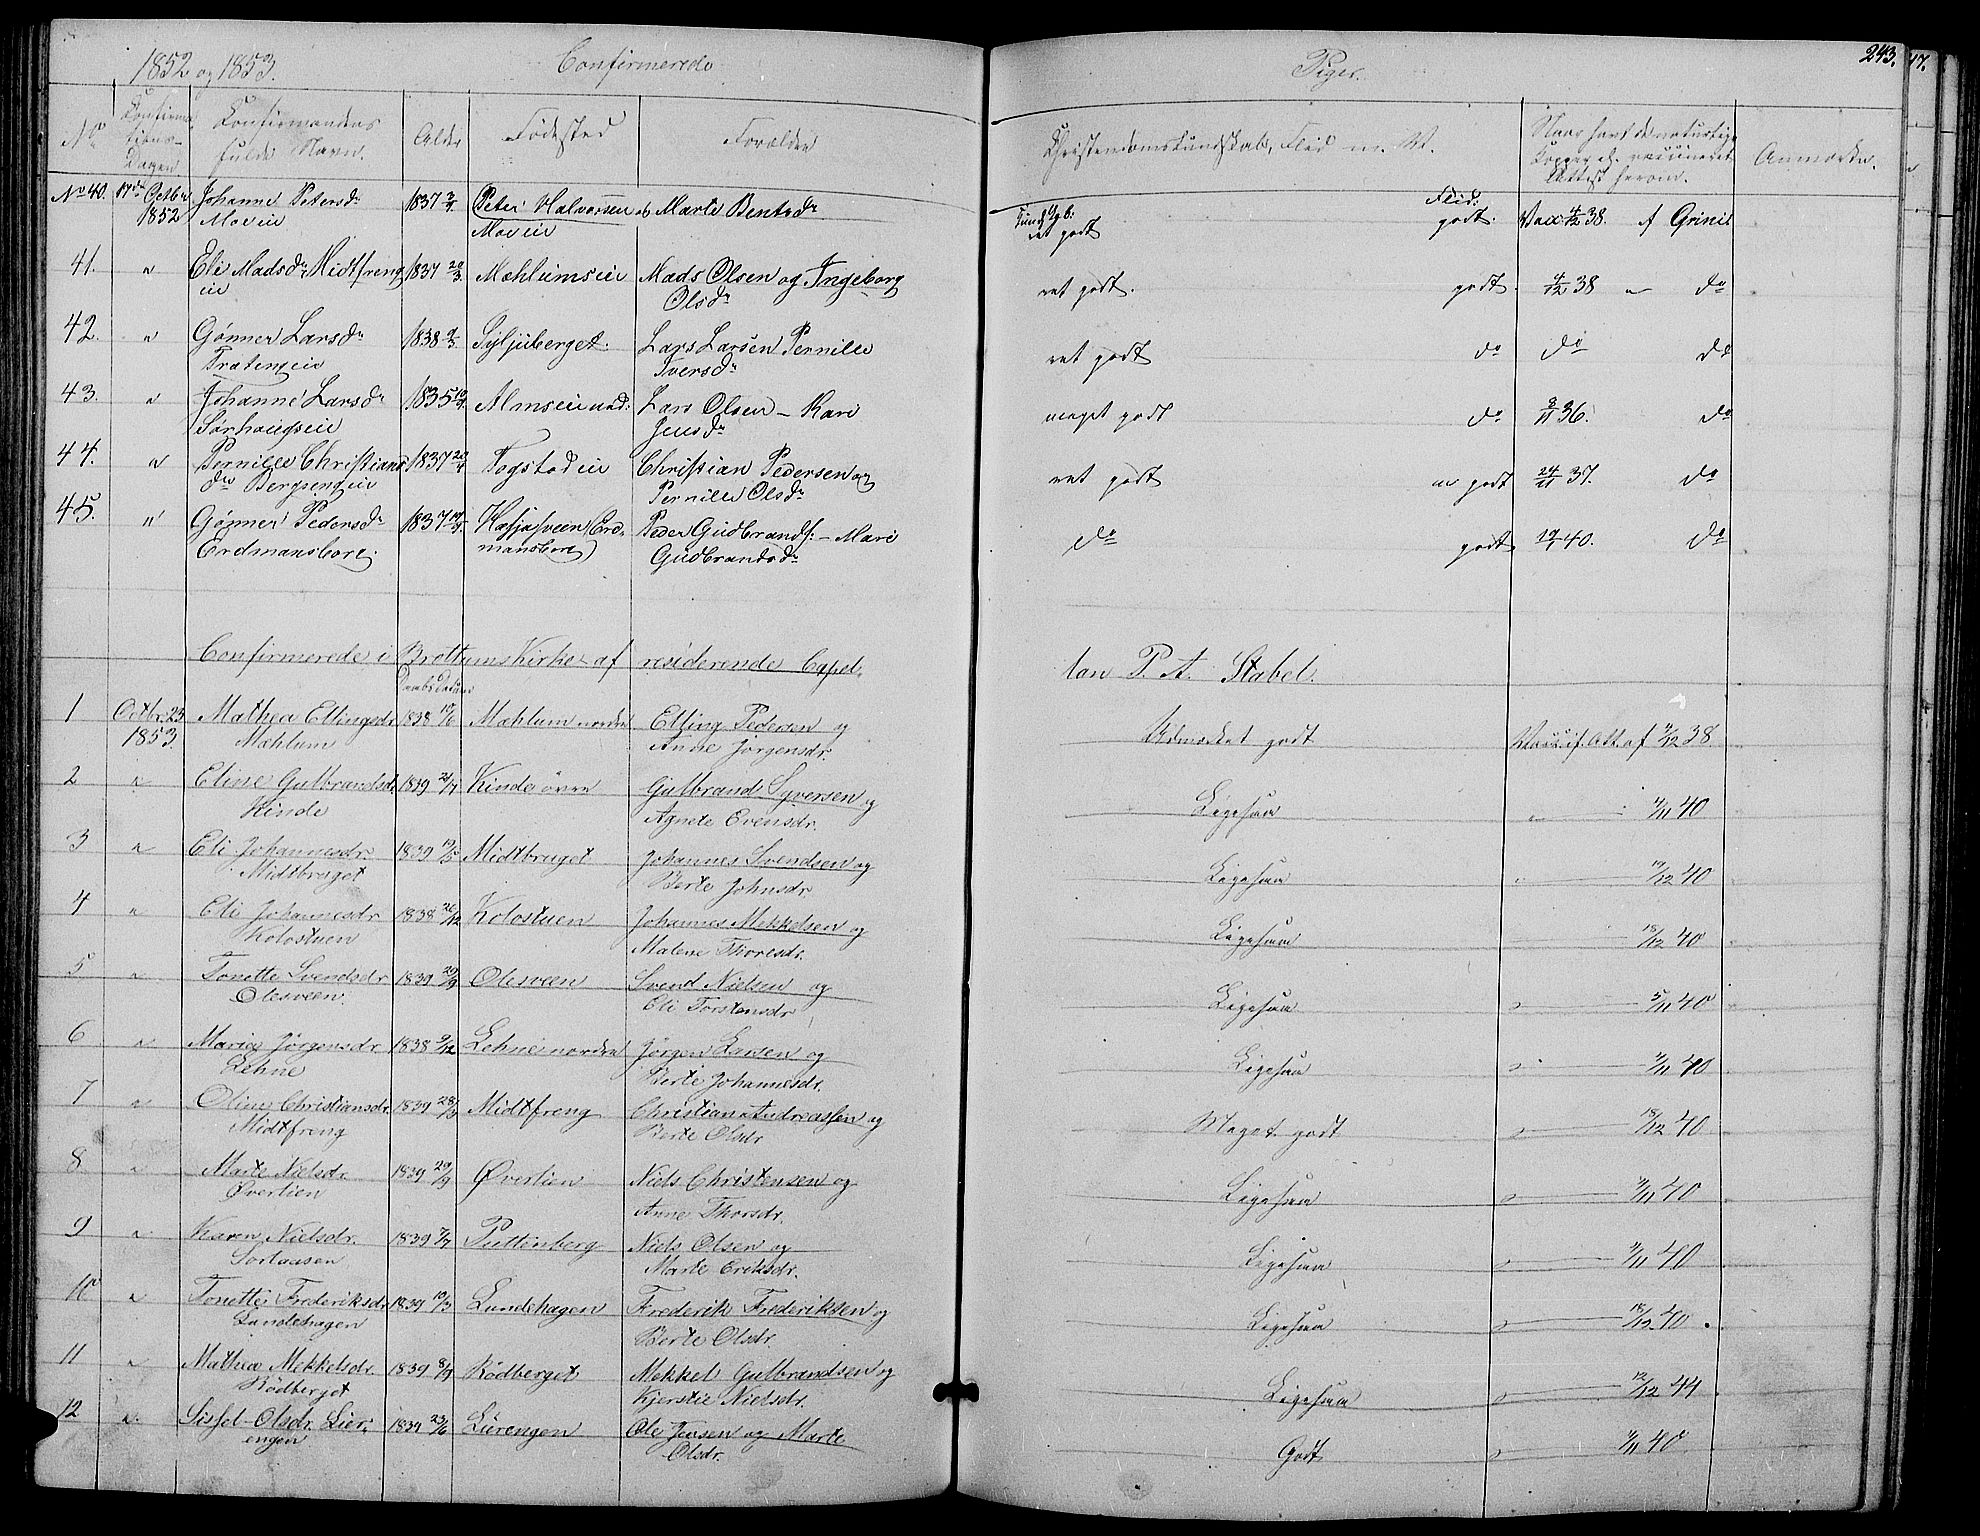 1852 og 1853. Confirmerede Piger. 243. 47.
No Confirmations-Dagen Confirmandens fulde Navn. Alder Fødested Forældre Christendomskundskab, Flid m. V. Naar havt de naturlige Kopper el. vaccineret Attest herom. Anmærkn.
No 40. 17de Octbr 1852 Johanne Petersdr Moeie 1837 Peter Halvorsen og Marte Bentsdr Moeie Kundskb: ret godt Flid: godt. Vax: 4/12 38. af Grinil
41. " Eli Madsdr Midtfreng eie 1837 20/3. Mæhlumseie Mads Olsen og Ingeborg Olsdr ret godt. godt. 4/12 38 " do
42. " Gønner Larsdr Brateneie 1838 Syljuberget. Lars Larsen Pernille Iversdr ret godt do do do
43. " Johanne Larsdr Sørhaugeie 1835 Almseie ned: Lars Olsen – Kari Jensdr meget godt do 3/11 36. do
44. " Pernille Christians dr Bergsengeie 1837 Fogstadeie Christian Pedersen og Pernille Olsdr ret godt m godt 24/11 37. do
45. " Gønner Pedersdr Erdmansborg. 1837 Hæsjasveen (Erdmansborg) Peder Gudbrands: – Mari Gudbrandsdr do godt. 19/1 40. do
Confirmerede i Brøttums Kirke af residerende Capellan P. A. Stabel.
Daabsdatum
1 Octbr. 23 1853. Mathea Ellingsdr Mæhlum 1838 10/6 Mæhlum nordre Elling Pedersen og Anne Jørgensdr. Udmærket godt Vaccif. Att. af 4/12 38.
2 " Eline Gulbrandsdr. Kinde 1839 21/7 Kinde øvre Gulbrand Syversen og Agnete Evensdr. Ligesaa " 4/11 40
3 " Eli Johannesdr. Midtbruget 1839 19/5 Midtbruget Johannes Svendsen og Berte Johnsdr. Ligesaa " 19/12 40
4 " Eli Johannesdr Kolostuen 1838 26/12 Kolostuen Johannes Mekkelsen og Malene Thoresdr. Ligesaa 18/12 40
5 " Tonette Svendsdr Olesveen. 1839 29/9 Olesveen Svend Nielsen og Eli Torstensdr Ligesaa " 5/11 40
6 " Marie Jørgensdr Lehne 1838 9/12 Lehne nordre Jørgen Larsen og Berte Johannesdr. Ligesaa " 4/11 40
7 " Oline Christiansdr. Midtfreng 1839 28/3 Midtfreng Christian Andreassen og Berte Olsdr Meget godt " 18/12 40
8 " Marte Nielsdr. Øverlien 1839 29/9 Øverlien Niels Christensen og Anne Thorsdr. Ligesaa " 4/11 40
9 " Karen Nielsdr. Sortaasen 1839 7/7 Puttenberg Niels Olsen og Marte Eriksdr. Ligesaa " 4/11 40
10 " Tonette Frederiksdr. Lundehagen 1839 10/3 Lundehagen Frederik Frederiksen og Berte Olsdr. Ligesaa " 18/12 40.
11 " Mathea Mekkelsdr. Rödberget 1839 8/9 Rödberget Mekkel Gulbrandsen og Kjerstie Nielsdr. Ligesaa " 12/12 44
12 " Sissel Olsdr. Lierengen 1839 23/6 Lierengen Ole Jensen og Marte Olsdr. Godt " 4/11 40